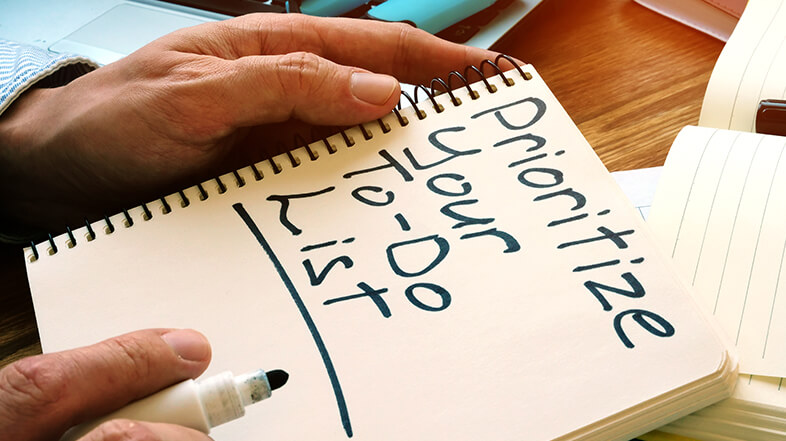 Prioritize
Your
To-Do
List